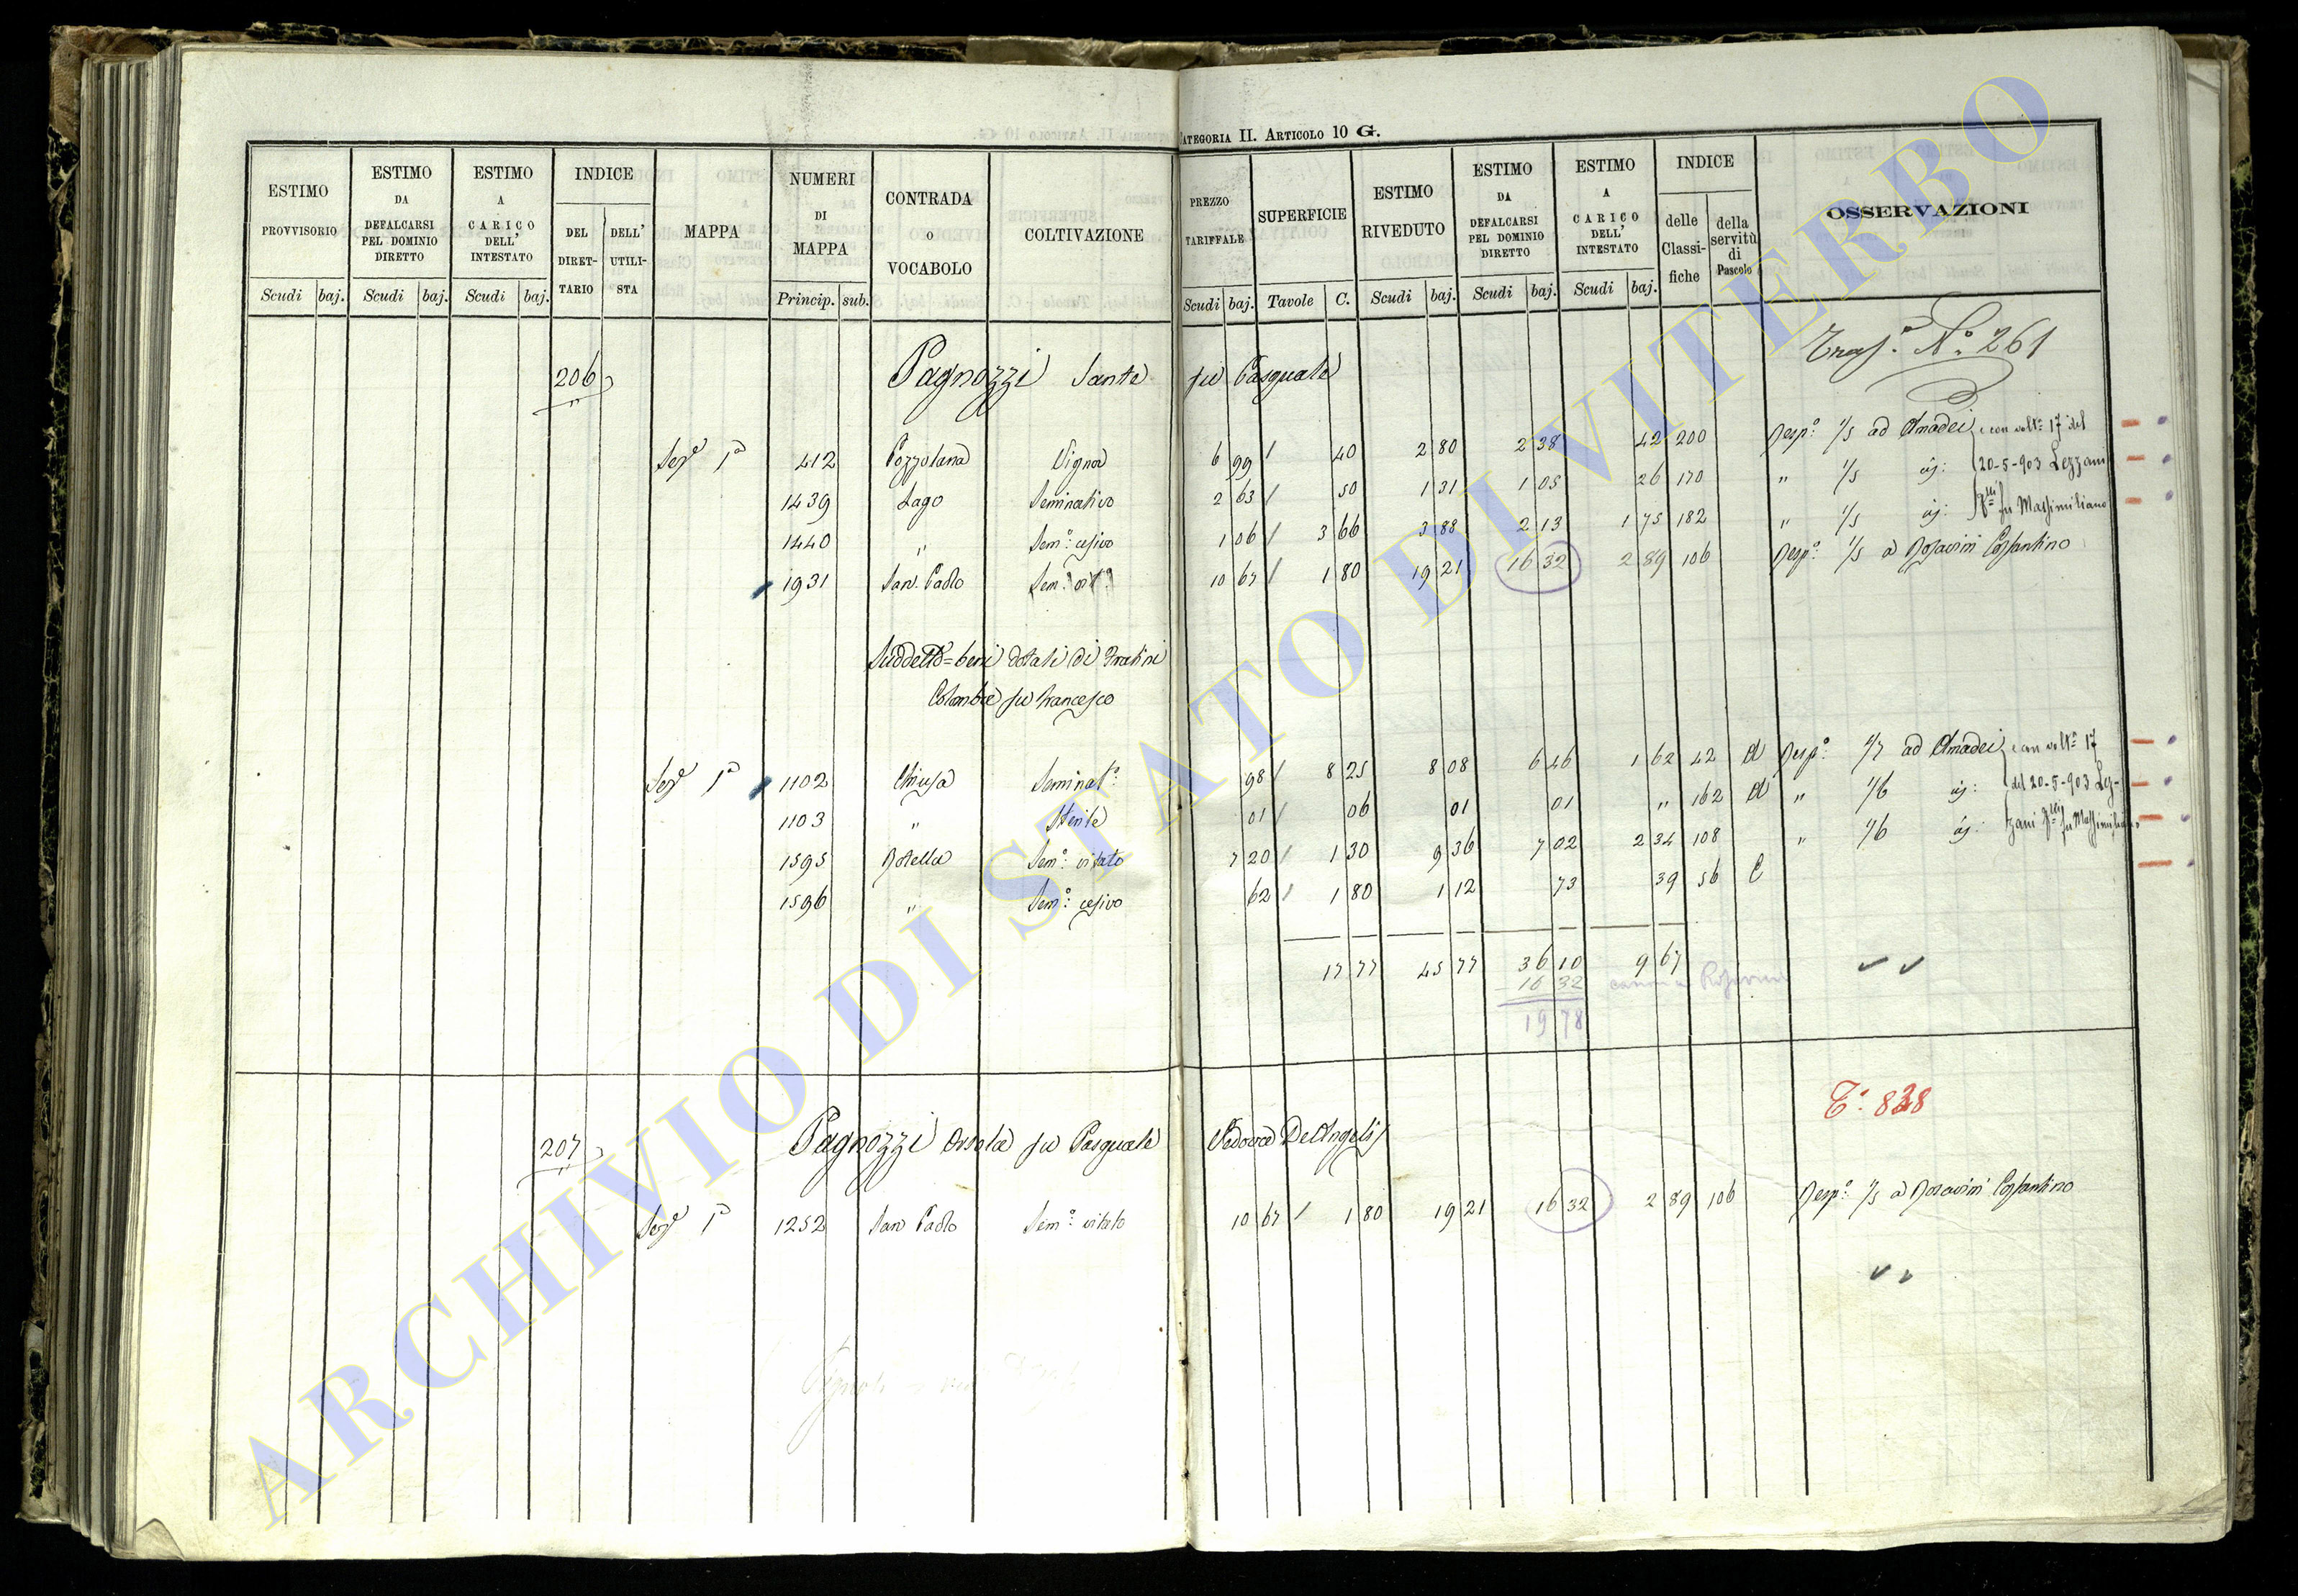 CATEGORIA II. ARTICOLO 10 G.
ESTIMO PROVVISORIO
ESTIMO DA DEFALCARSI PEL DOMINIO DIRETTO
ESTIMO A CARICO DELL' INTESTATO
INDICE
DEL DIRETTARIO
DELL' UTILISTA
MAPPA
NUMERI DI MAPPA
CONTRADA O VOCABOLO
COLTIVAZIONE
PREZZO TARIFFALE
SUPERFICIE
ESTIMO RIVEDUTO
ESTIMO DA DEFALCARSI PEL DOMINIO DIRETTO
ESTIMO A CARICO DELL' INTESTATO
INDICE
delle Classifiche
della servitù di Pascolo
OSSERVAZIONI
Scudi baj. Scudi baj. Scudi baj. Princip. sub. Scudi baj. Tavole C. Scudi baj. Scudi baj. Scudi baj.
N.º 261
206 Pagnozzi Sante fu Pasquale
Sezº 1ª 412 Pozzolana Vigna 6 99 / 40 2 80 2 38 42 200 Respº: 1/5 ad Amadei e con voltª 17 del
1439 Lago Seminativo 2 63 / 50 1 31 1 05 26 170 " 1/5 20-5-903 Lezzani
1440 " Semº: cesivo 1 06 / 3 66 3 88 2 13 1 75 182 " 1/5 fu Massimiliano
1931 San Paolo 10 67 / 1 80 19 21 16 32 2 89 106 Respº: 1/5 a Rosavini Costantino
Suddetto = beni dotali di
Colomba fu Francesco
Sezº 1ª 1102 Chiusa Seminatº: 98 / 8 25 8 08 6 46 1 62 42 A Respº: 1/5 ad Amadei e con voltª 17
1103 " Sterile 01 / 06 01 01 " 162 A " 1/6 del 20-5-903 Lez-
1595 Rotella Semº: vitato 7 20 / 1 30 9 36 7 02 2 34 108 " 1/6 zani fu Massimiliano
1596 " Semº: cesivo 62 / 1 80 1 12 73 39 56 C
17 77 45 77 36 10 9 67
16 32
19 78
Tº: 838
207 Pagnozzi Orsola fu Pasquale Vedova DeAngelis
Sezº 1ª 1252 San Paolo Semº: vitato 10 67 / 1 80 19 21 16 32 2 89 106 Respº: 1/5 a Rosavini Costantino
ARCHIVIO DI STATO DI VITERBO